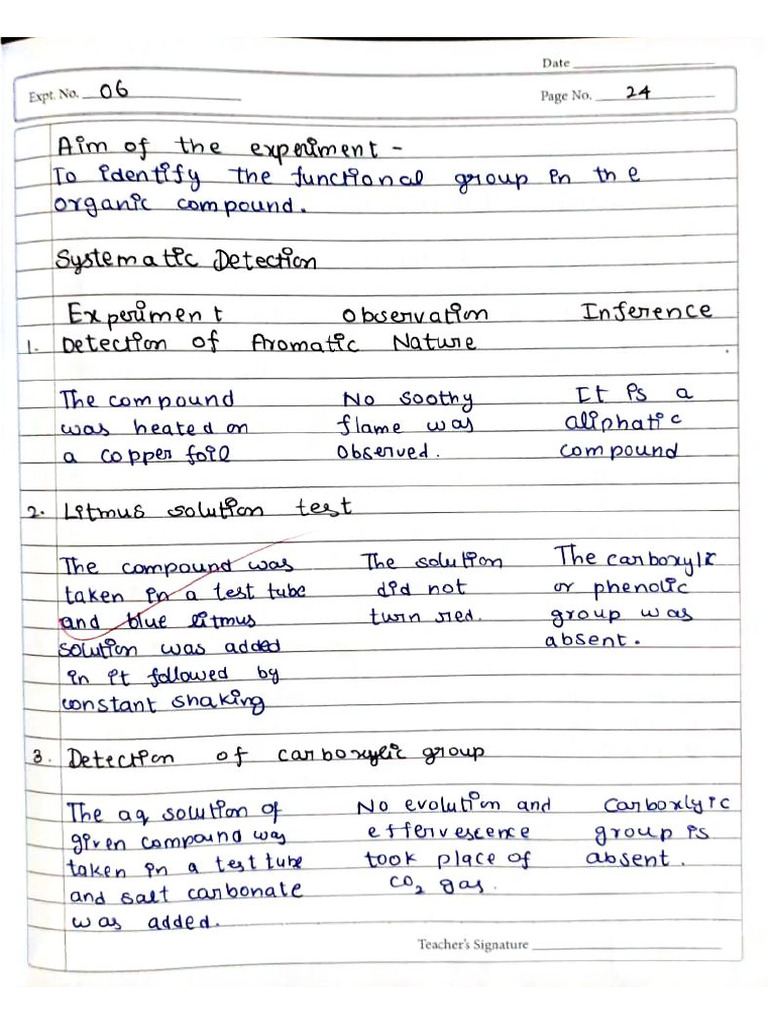 Date
Expt. No. 06
Page No. 24
Aim of the experiment -
To identify the functional group in the
organic compound.
Systematic Detection
Experiment Observation Inference
1. Detection of Aromatic Nature
The compound No soothy It is a
was heated on flame was aliphatic
a copper foil observed. compound
2. Litmus solution test
The compound was The solution The carboxylic
taken in a test tube did not or phenolic
and blue litmus turn red. group was
solution was added absent.
in it followed by
constant shaking
3. Detection of carboxylic group
The aq solution of No evolution and Carboxlyic
given compound was effervescence group is
taken in a test tube took place of absent.
and salt carbonate CO2 gas.
was added.
Teacher's Signature